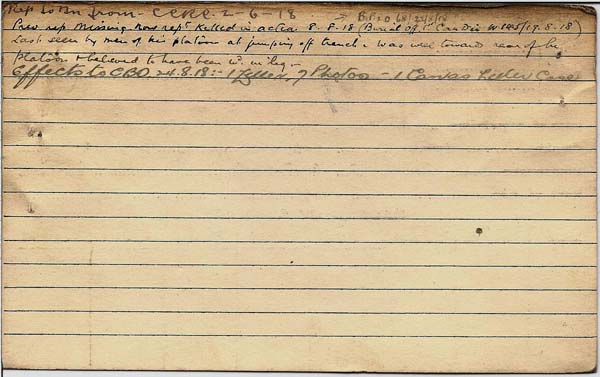 Rep to Bn from CCRC 2-6-18
Prev rep missing now rept Killed in action 8-8-18 (Burial Off. Can Div W 185/19-8-18)
Last seen by men of his platoon at jumping off trench & was well toward rear of his
platoon & believed to have been w. in leg -
Effects to CBO 24.8.18:- 1 Letter, 7 Photos - 1 Canvas Letter Case